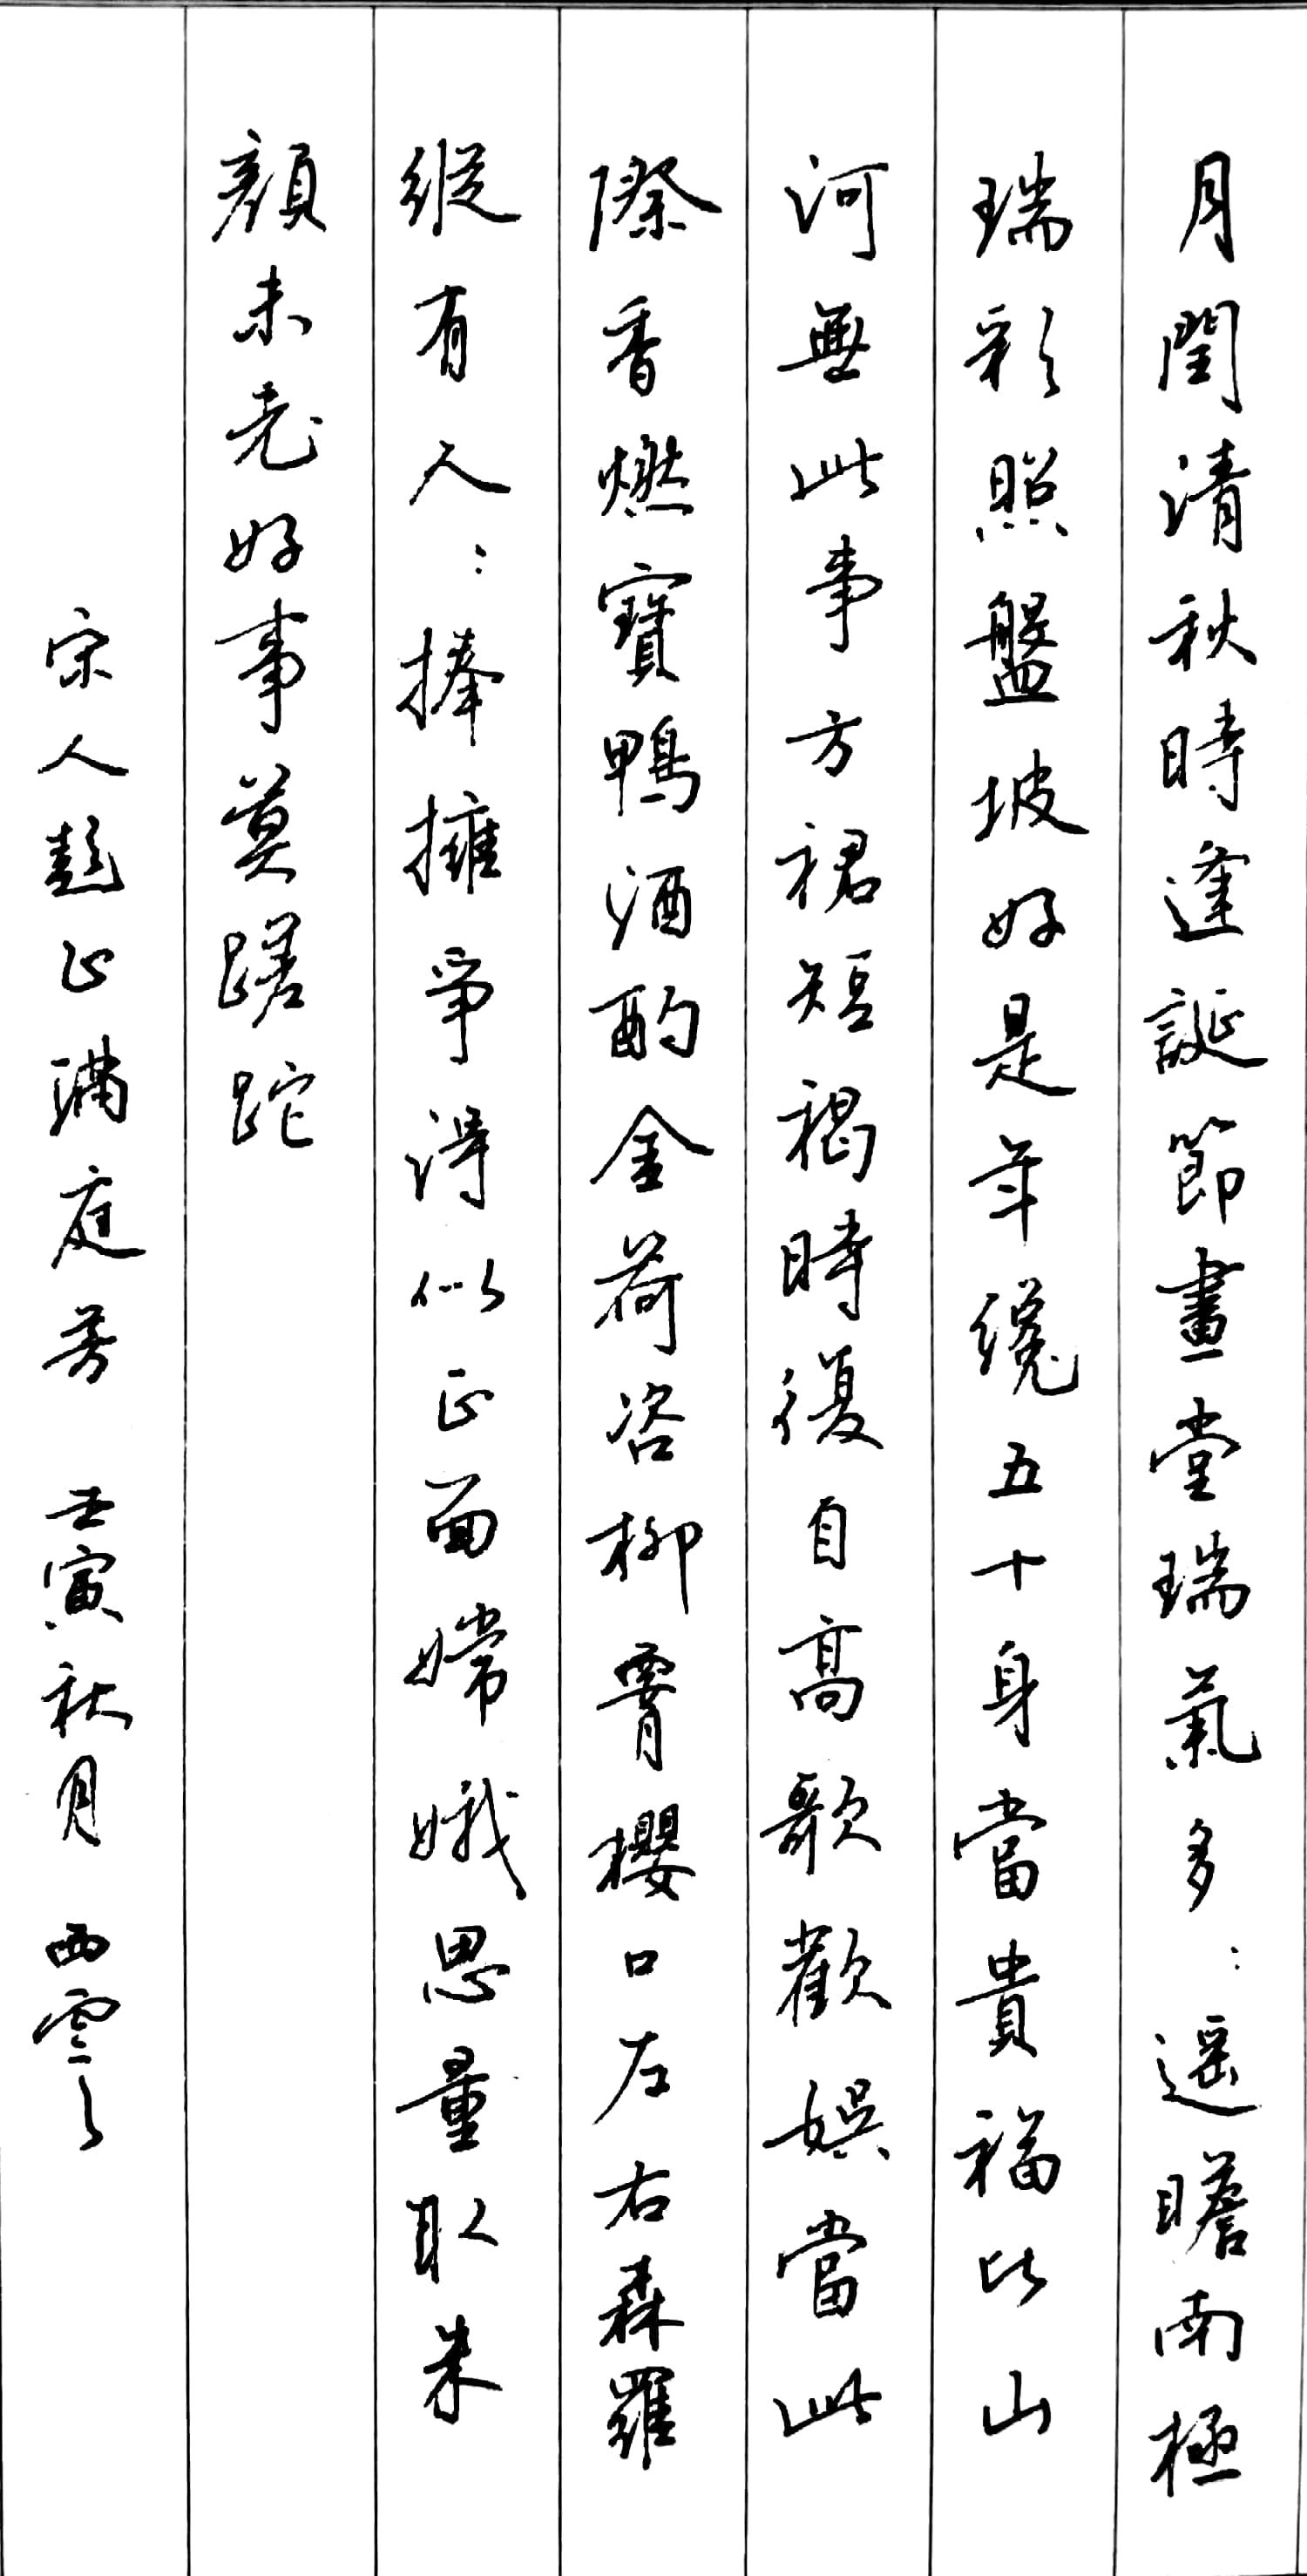 月閏清秋時逢誕節畫堂瑞氣多:遥瞻南極
瑞彩照盤坡好是年纔五十身當貴福比山
河無此事方裙短褐時復自高歌歡娛當此
際香燃寶鴨酒酌金荷咨柳霄櫻口左右森羅
縱有人:捧擁爭得似正面嫦娥思量取朱
顏未老好事莫蹉跎
宋人趙必滿庭芳 壬寅秋月 西雲